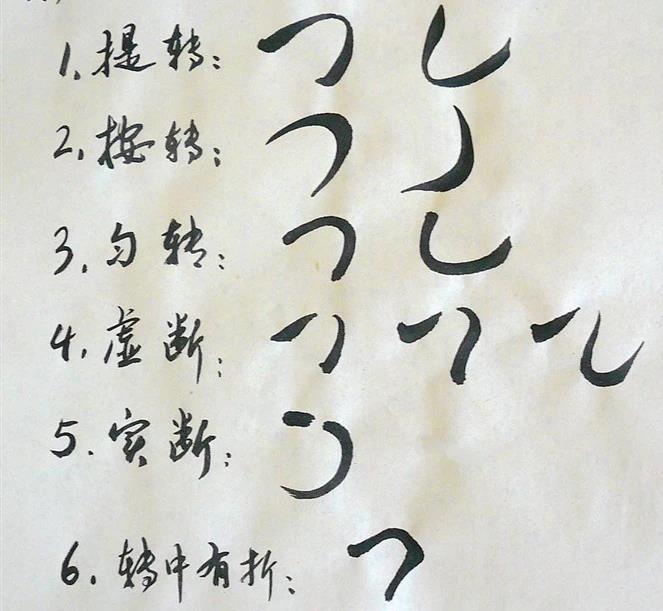 1、提转：
2、按转：
3、匀转：
4、虚断：
5、实断：
6、转中有折：